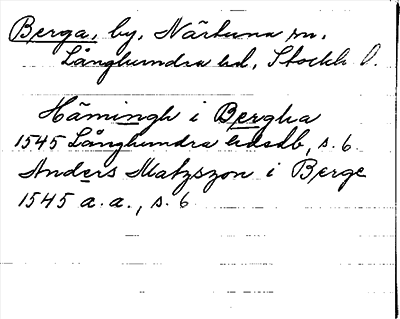 Berga, by, Närtuna sn,
Långhundra hd, Stockh. l.
Hämingh i Bergha
1545 Långhundra hdsdb, s. 6
Anders Matzszon i Berge
1545 a. a., s. 6